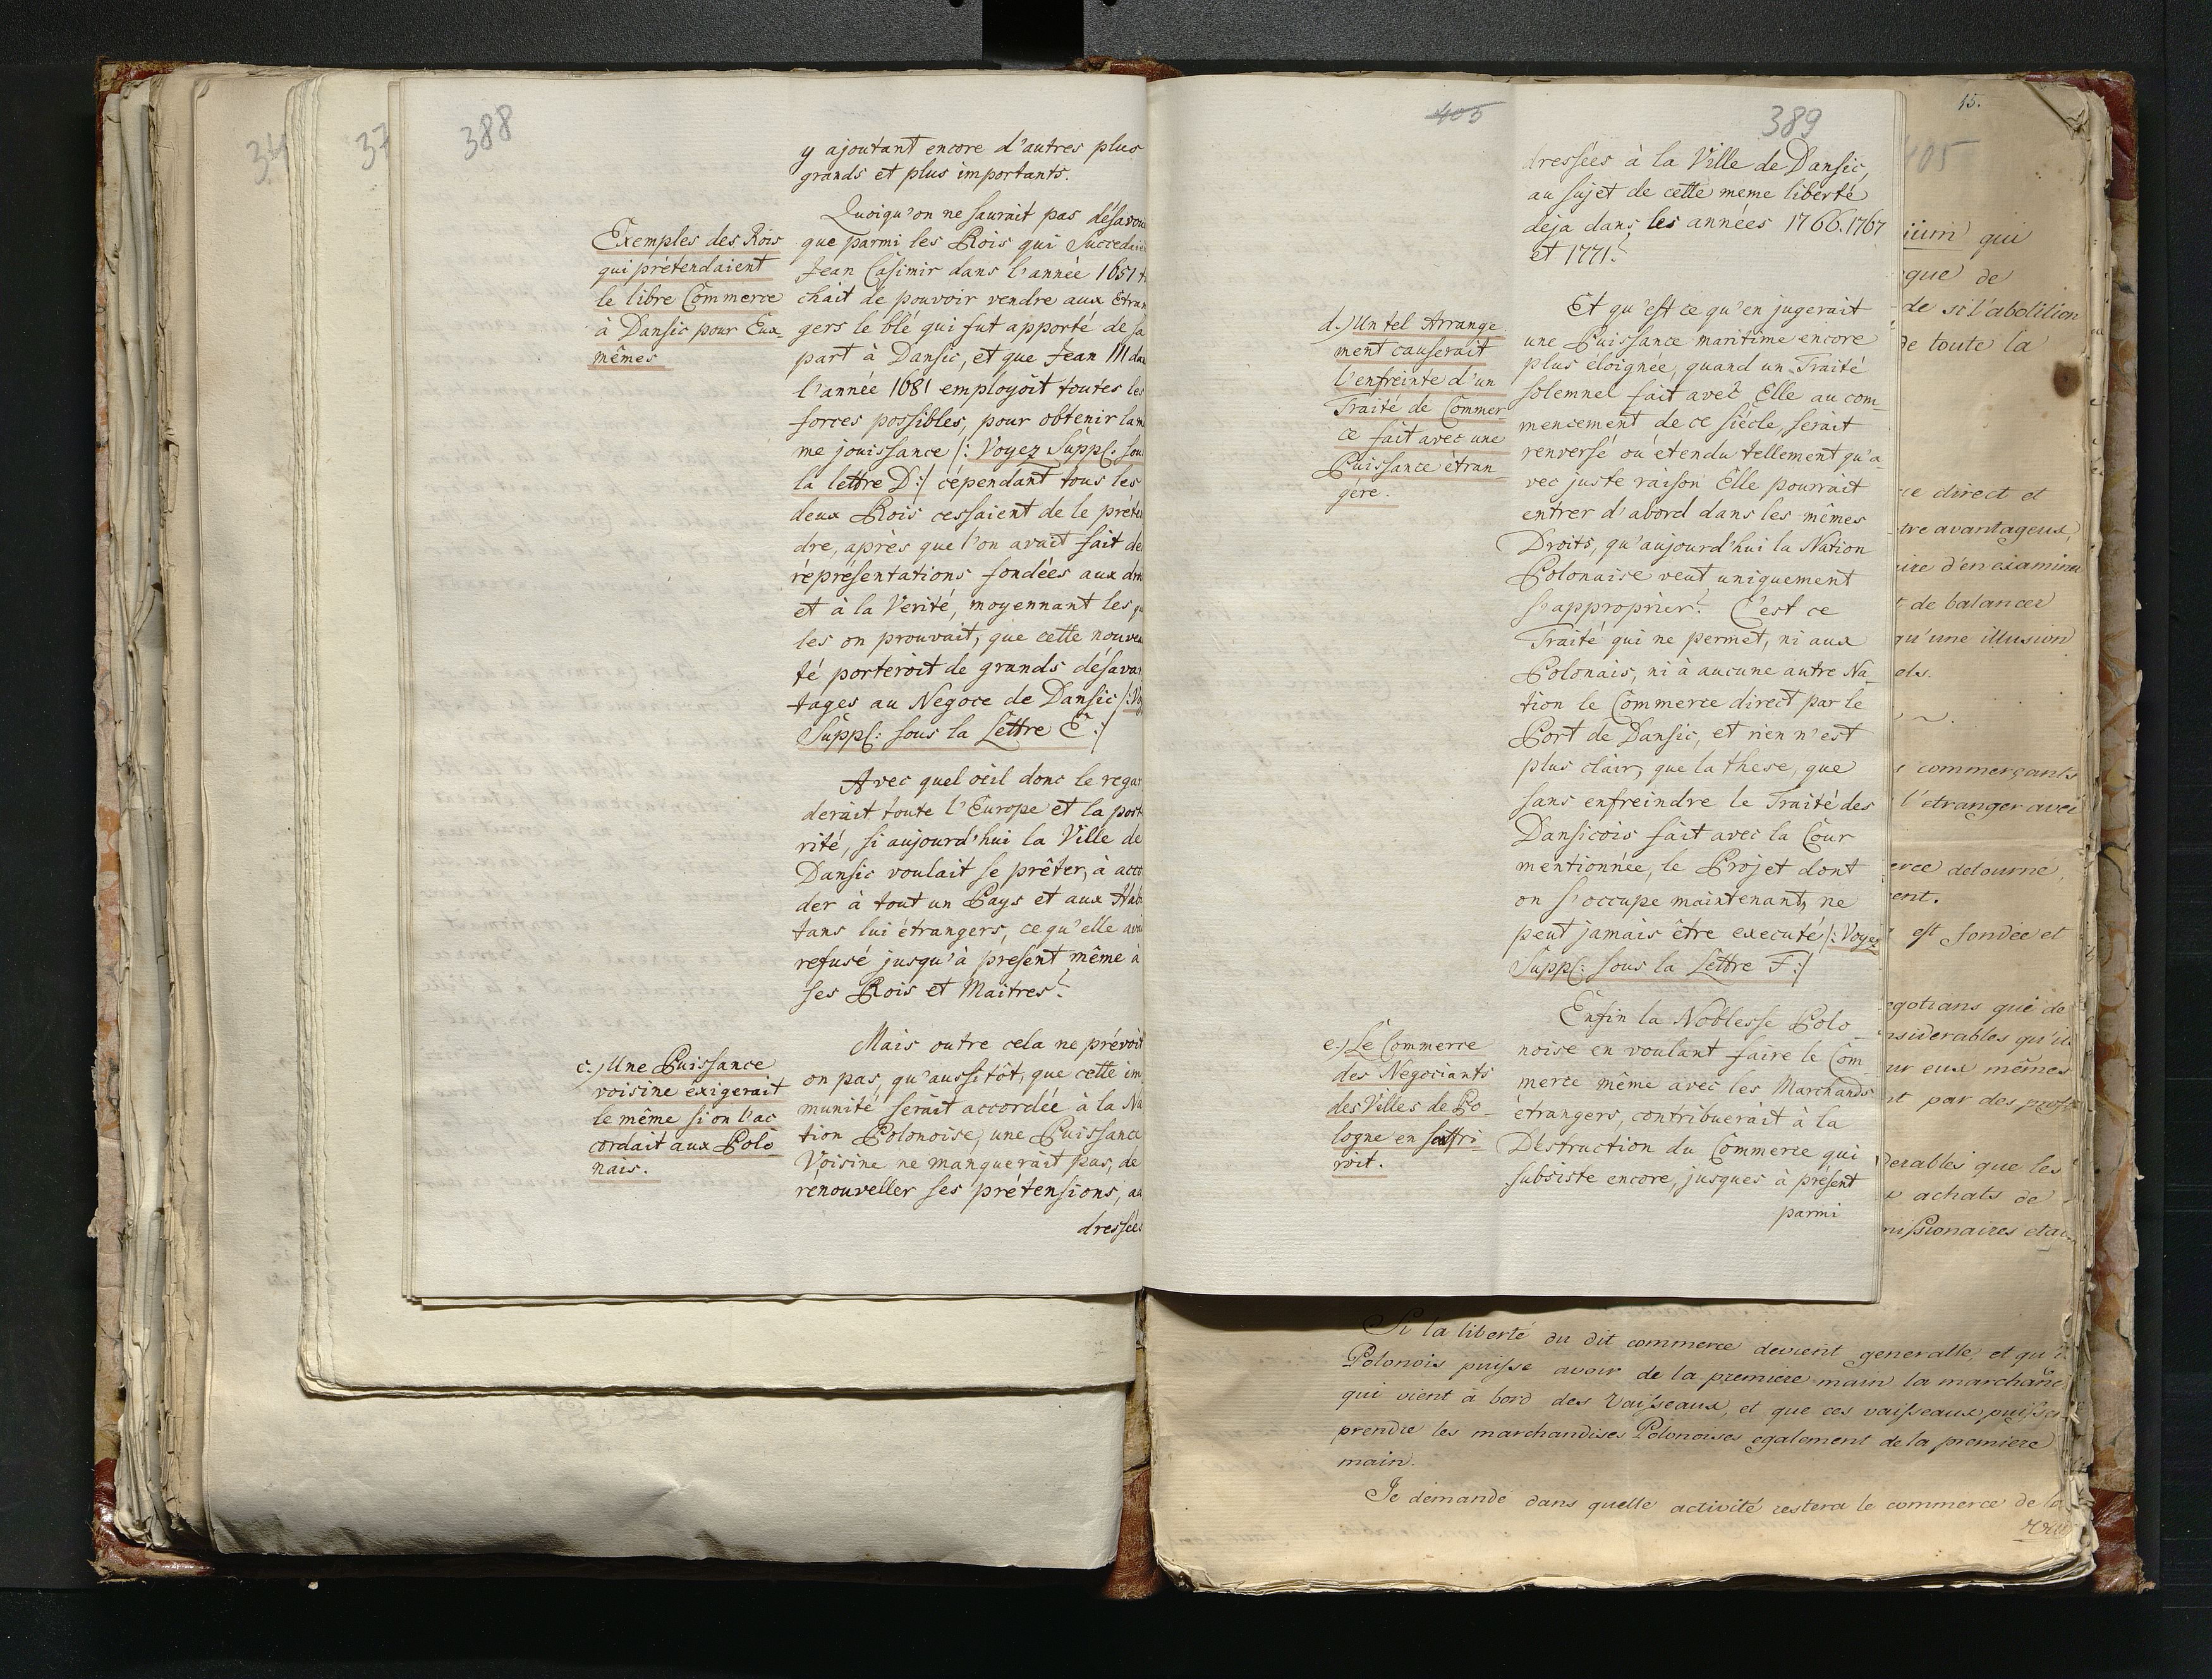 388
y ajoutant encore d'autres plus
grands et plus importants.
Exemples des Rois
qui prétendaient
le libre Commerce
à Dansic pour Eux-
mêmes
Quoiqu'on ne saurait pas désavou
que parmi les Rois qui succedaie
Jean Casimir dans l'année 1651 t
chait de pouvoir vendre aux Etran
gers le blé qui fut apporté de sa
part à Dansic, et que Jean III dan
l'année 1681 employoit toutes les
forces possibles, pour obtenir la m
me jouissance /: Voyez Suppl: sou
la lettre D:/ cépendant tous les
deux Rois cessaient de le préten
dre, après que l'on avait fait de
représentations fondées aux dro
et à la Verité, moyennant les q
les on prouvait, que cette nouvea
té porteroit de grands désavan
tages au Negoce de Dansic /: Voy
Suppl: sous la Lettre E:/
Avec quel oeil donc le regar
derait toute l'Europe et la post
rité, si aujourd'hui la Ville de
Dansic voulait se prêter, à acco
der à tout un Pays et aux Habi
tans lui étrangers, ce qu'elle avai
refusé jusqu'à present même à
ses Rois et Maitres?
c.) Une Puissance
voisine exigerait
le même si on l'ac
cordait aux Polo
nais.
Mais outre cela ne prévoit
on pas, qu'aussitôt, que cette im
munité serait accordée à la Na
tion Polonoise, une Puissance
Voisine ne manquerait pas, de
rénouveller ses prétensions, ad
dressées
405
389
dressées à la Ville de Dansic,
au sujet de cette meme liberté
déja dans les années 1766. 1767
et 1771?
d.) Un tel Arrange
ment causerait
l'enfreinte d'un
Traité de Commer-
ce fait avec une
Puissance étran-
gére.
Et qu'est ce qu'en jugerait
une Puissance maritime encore
plus éloignée, quand un Traité
solemnel fait avec Elle au com-
mencement de ce siécle, serait
renversé ou étendu tellement qu'a-
vec juste raison Elle pourrait
entrer d'abord dans les mêmes
Droits, qu'aujourd'hui la Nation
Polonaise veut uniquement
s'approprier? C'est ce
Traité qui ne permet, ni aux
Polonais, ni à aucune autre Na-
tion le Commerce direct par le
Port de Dansic, et rien n'est
plus clair, que la these, que
sans enfreindre le Traité des
Dansicois fait avec la Cour
mentionnée, le Projet dont
on s'occupe maintenant, ne
peut jamais être executé /: Voyez
Suppl: sous la Lettre F:/
e.) Le Commerce
des Negociants
des Villes de Po-
logne en souffri-
roit.
Enfin la Noblesse Polo-
noise en voulant faire le Com-
merce même avec les Marchands
étrangers, contribuerait à la
Déstruction du Commerce qui
subsiste encore, jusques à présent
parmi
15.
405
qui
que de
de si l'abolition
de toute la
ce direct et
tre avantageux,
ire d'en examiner
t de balancer
qu'une illusion
els.
commerçants
l'etranger avec
erce detourné,
ent.
est fondée et
egotians que de
nsiderables qu'ils
ur eux mêmes
nt par des
derables que les
x achats de
missionaires et a
Si la liberté du dit commerce devient generalle et qu
Polonois puisse avoir de la premiere main la marchand
qui vient à bord des Vaisseaux, et que ces vaisseaux puisse
prendre les marchandises Polonoises egalement de la premiere
main.
Je demande dans quelle activité restera le commerce de la